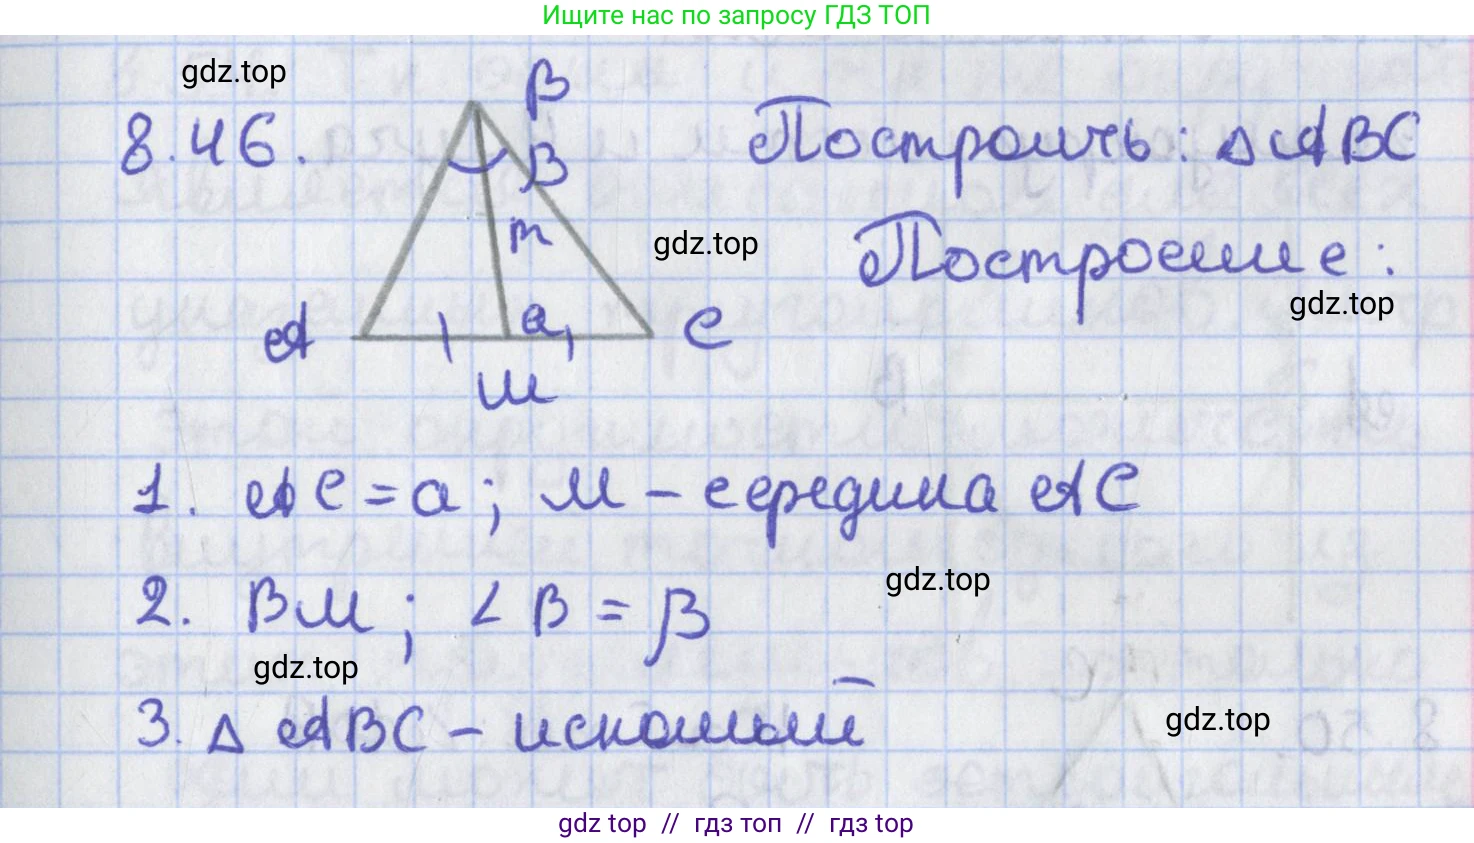 Ищите нас по запросу ГДЗ ТОП
gdz.top
8.46.
β
Построить: △ABC
β
m
gdz.top
Построение:
gdz.top
A
a
C
M
1. AC = a; M – середина AC
gdz.top
2. BM; ∠B = β
gdz.top
3. △ABC – искомый
gdz.top
gdz top // гдз топ // гдз top